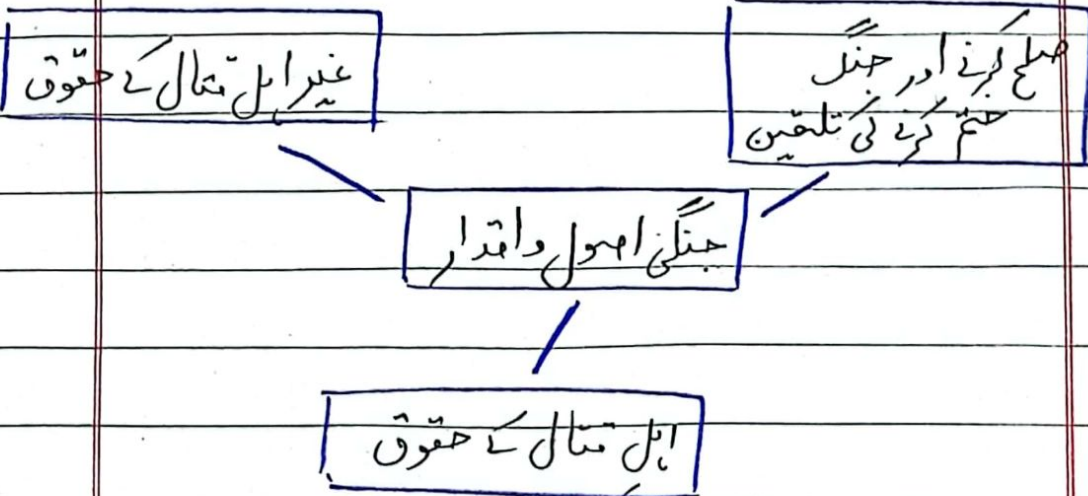 صلح کرنے اور جنگ
ختم کرنے کی تلقین
غیر اہل قتال کے حقوق
جنگی اصول واقدار
اہل قتال کے حقوق